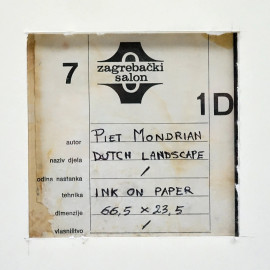 7
zagrebački
salon
1D
autor PIET MONDRIAN
naziv djela DUTCH LANDSCAPE
odina nastanka /
tehnika INK ON PAPER
dimenzije 66,5 × 23,5
vlasništvo /